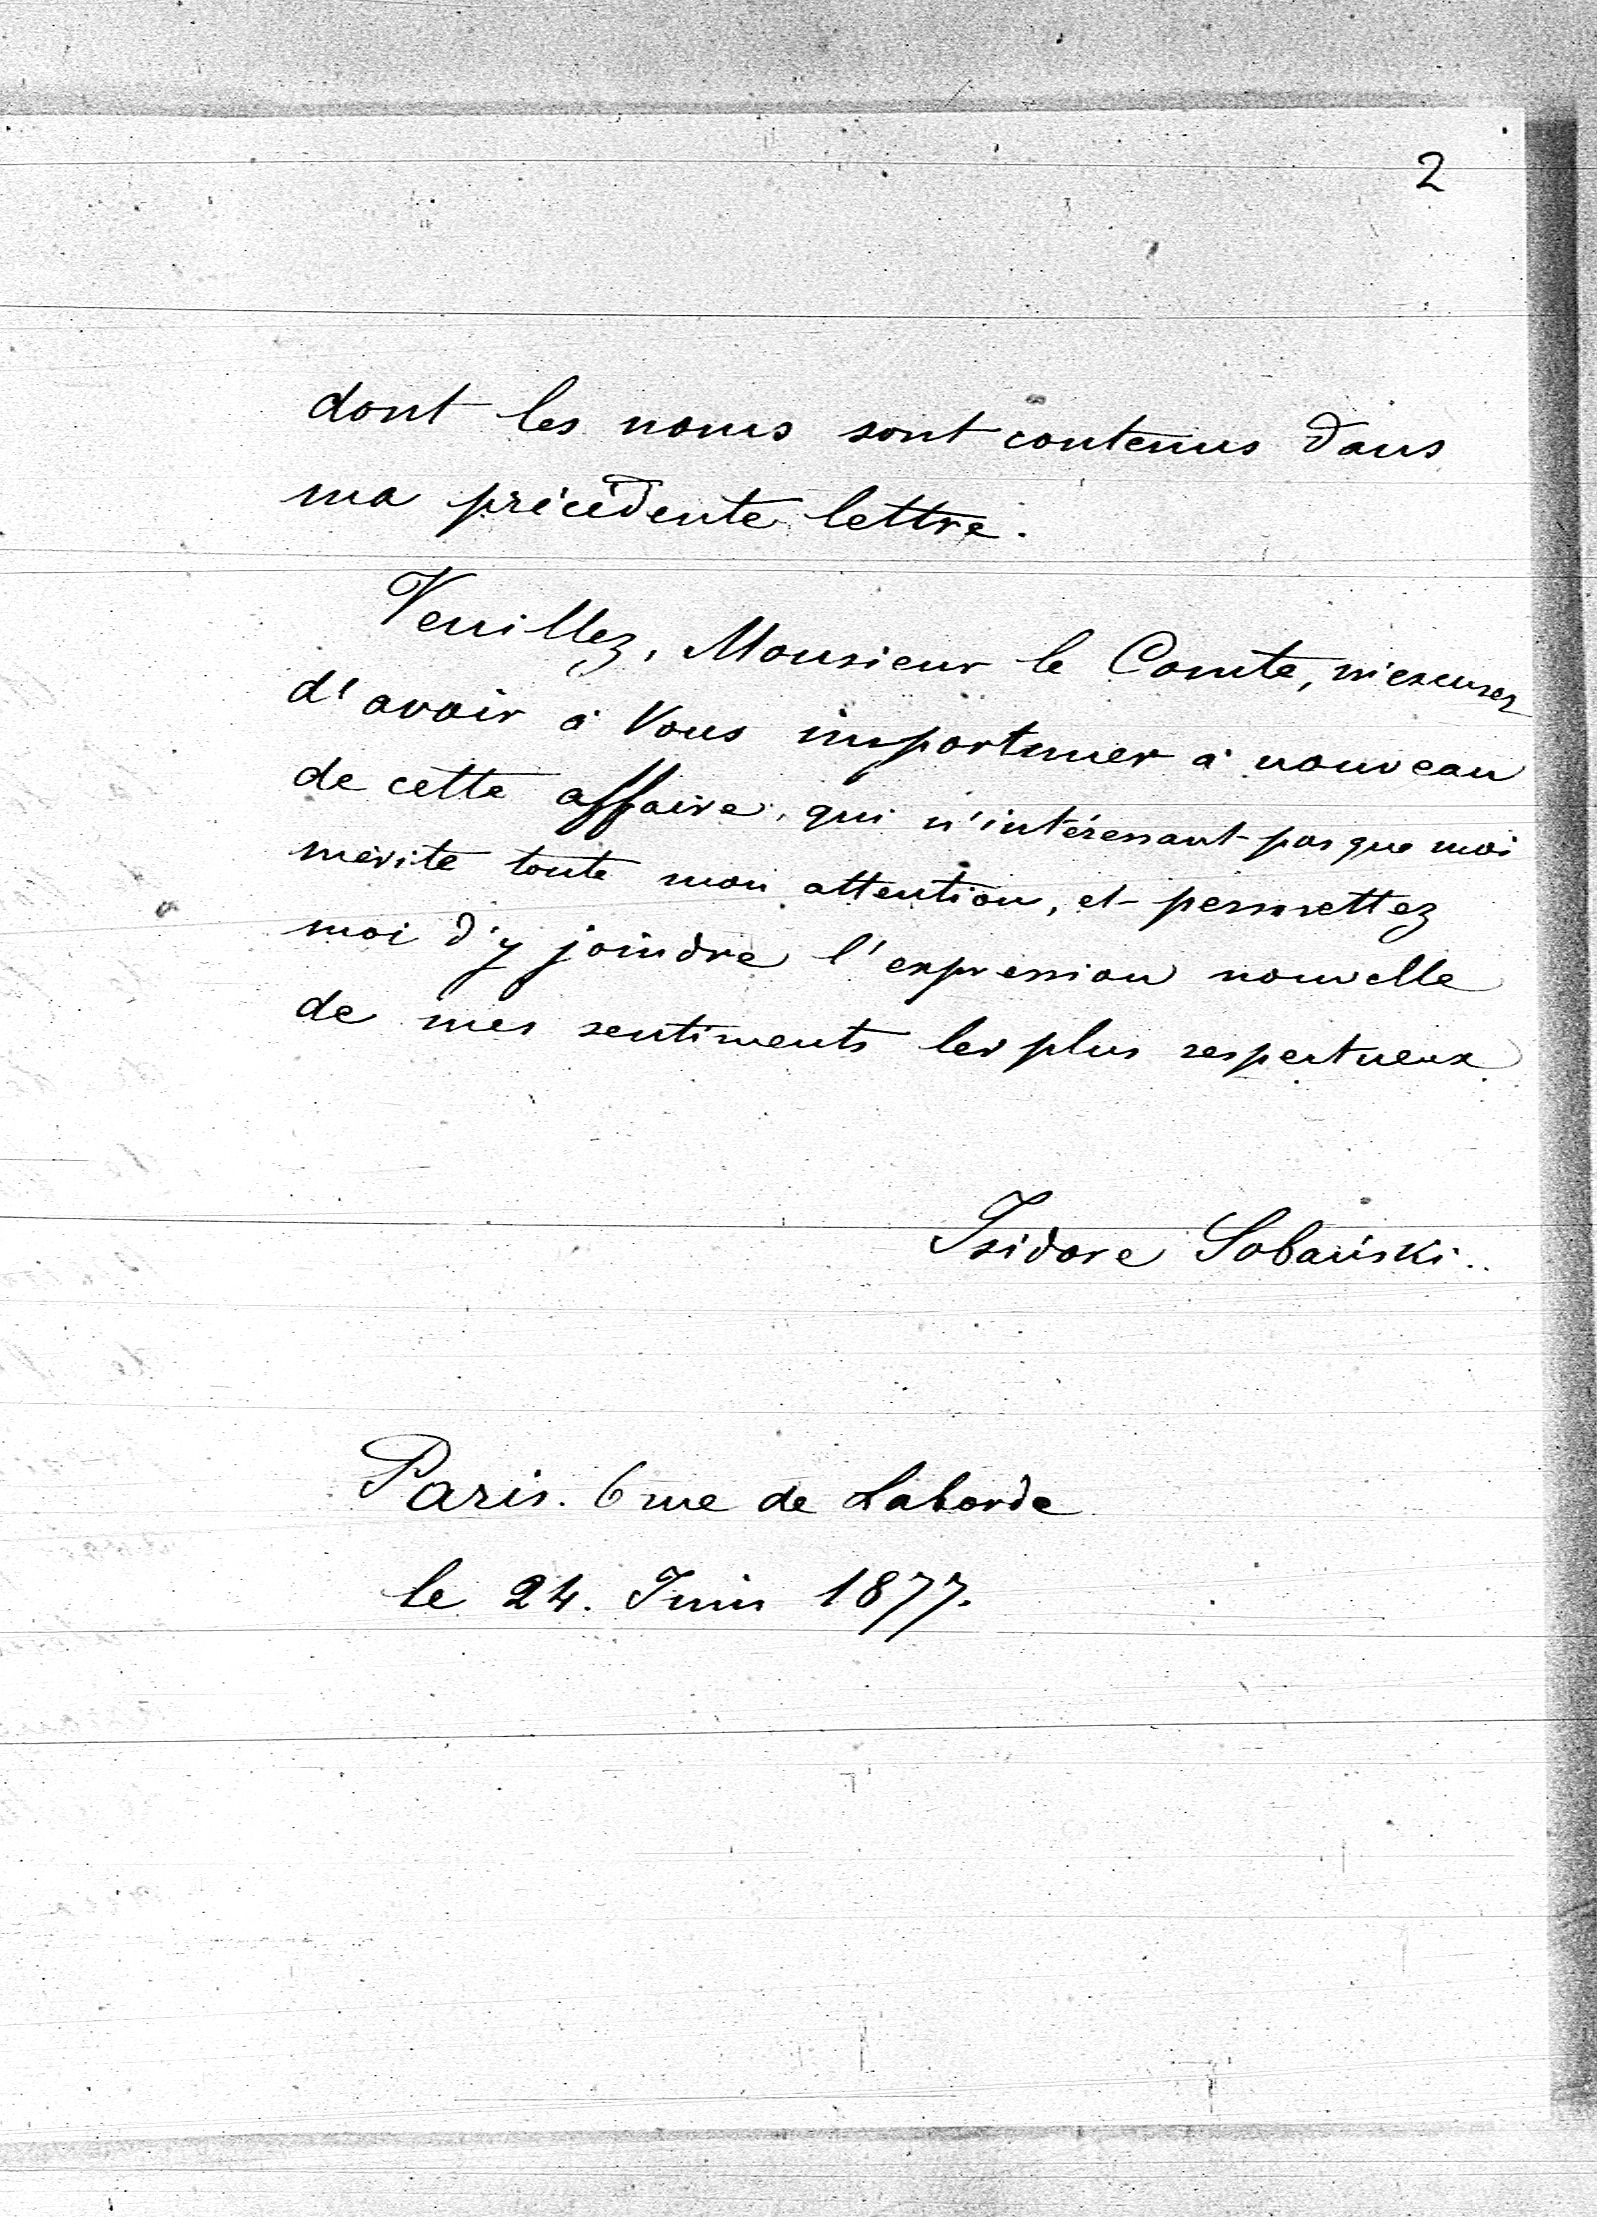 2
dont les noms sont contenus dans
ma précédente lettre.
Veuillez, Monsieur le Comte, m'excuser
d'avoir à Vous importuner à nouveau
de cette affaire, qui n'intéressant pas que moi
mérite toute mon attention, et permettez
moi d'y joindre l'expression nouvelle
de mes sentiments les plus respectueux
Isidore Sobański.
Paris. 6 rue de Laborde
le 24. Juin 1877.